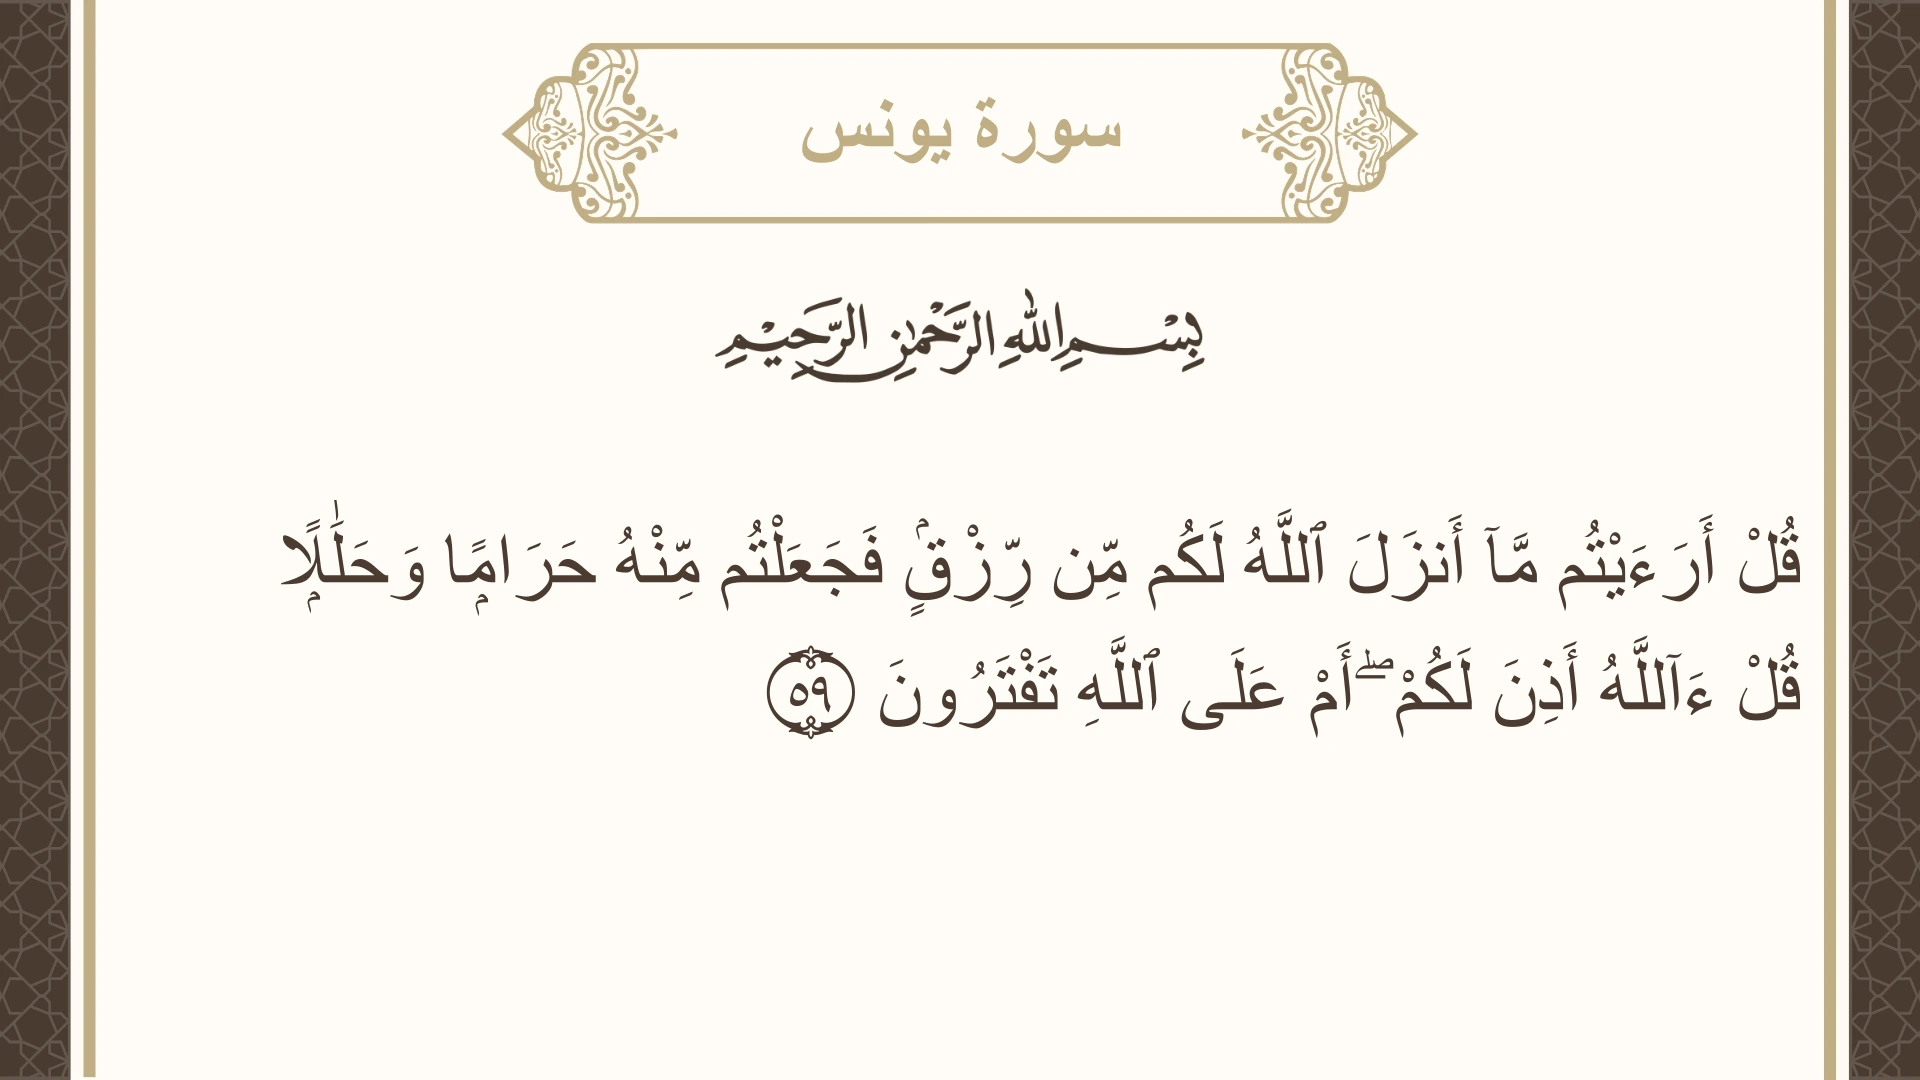 سورة يونس
بِسْمِ اللهِ الرَّحْمٰنِ الرَّحِيْمِ
قُلْ أَرَءَيْتُم مَّآ أَنزَلَ ٱللَّهُ لَكُم مِّن رِّزْقٍۢ فَجَعَلْتُم مِّنْهُ حَرَامًۭا وَحَلَـٰلًۭا
قُلْ ءَآللَّهُ أَذِنَ لَكُمْ ۖ أَمْ عَلَى ٱللَّهِ تَفْتَرُونَ ٥٩